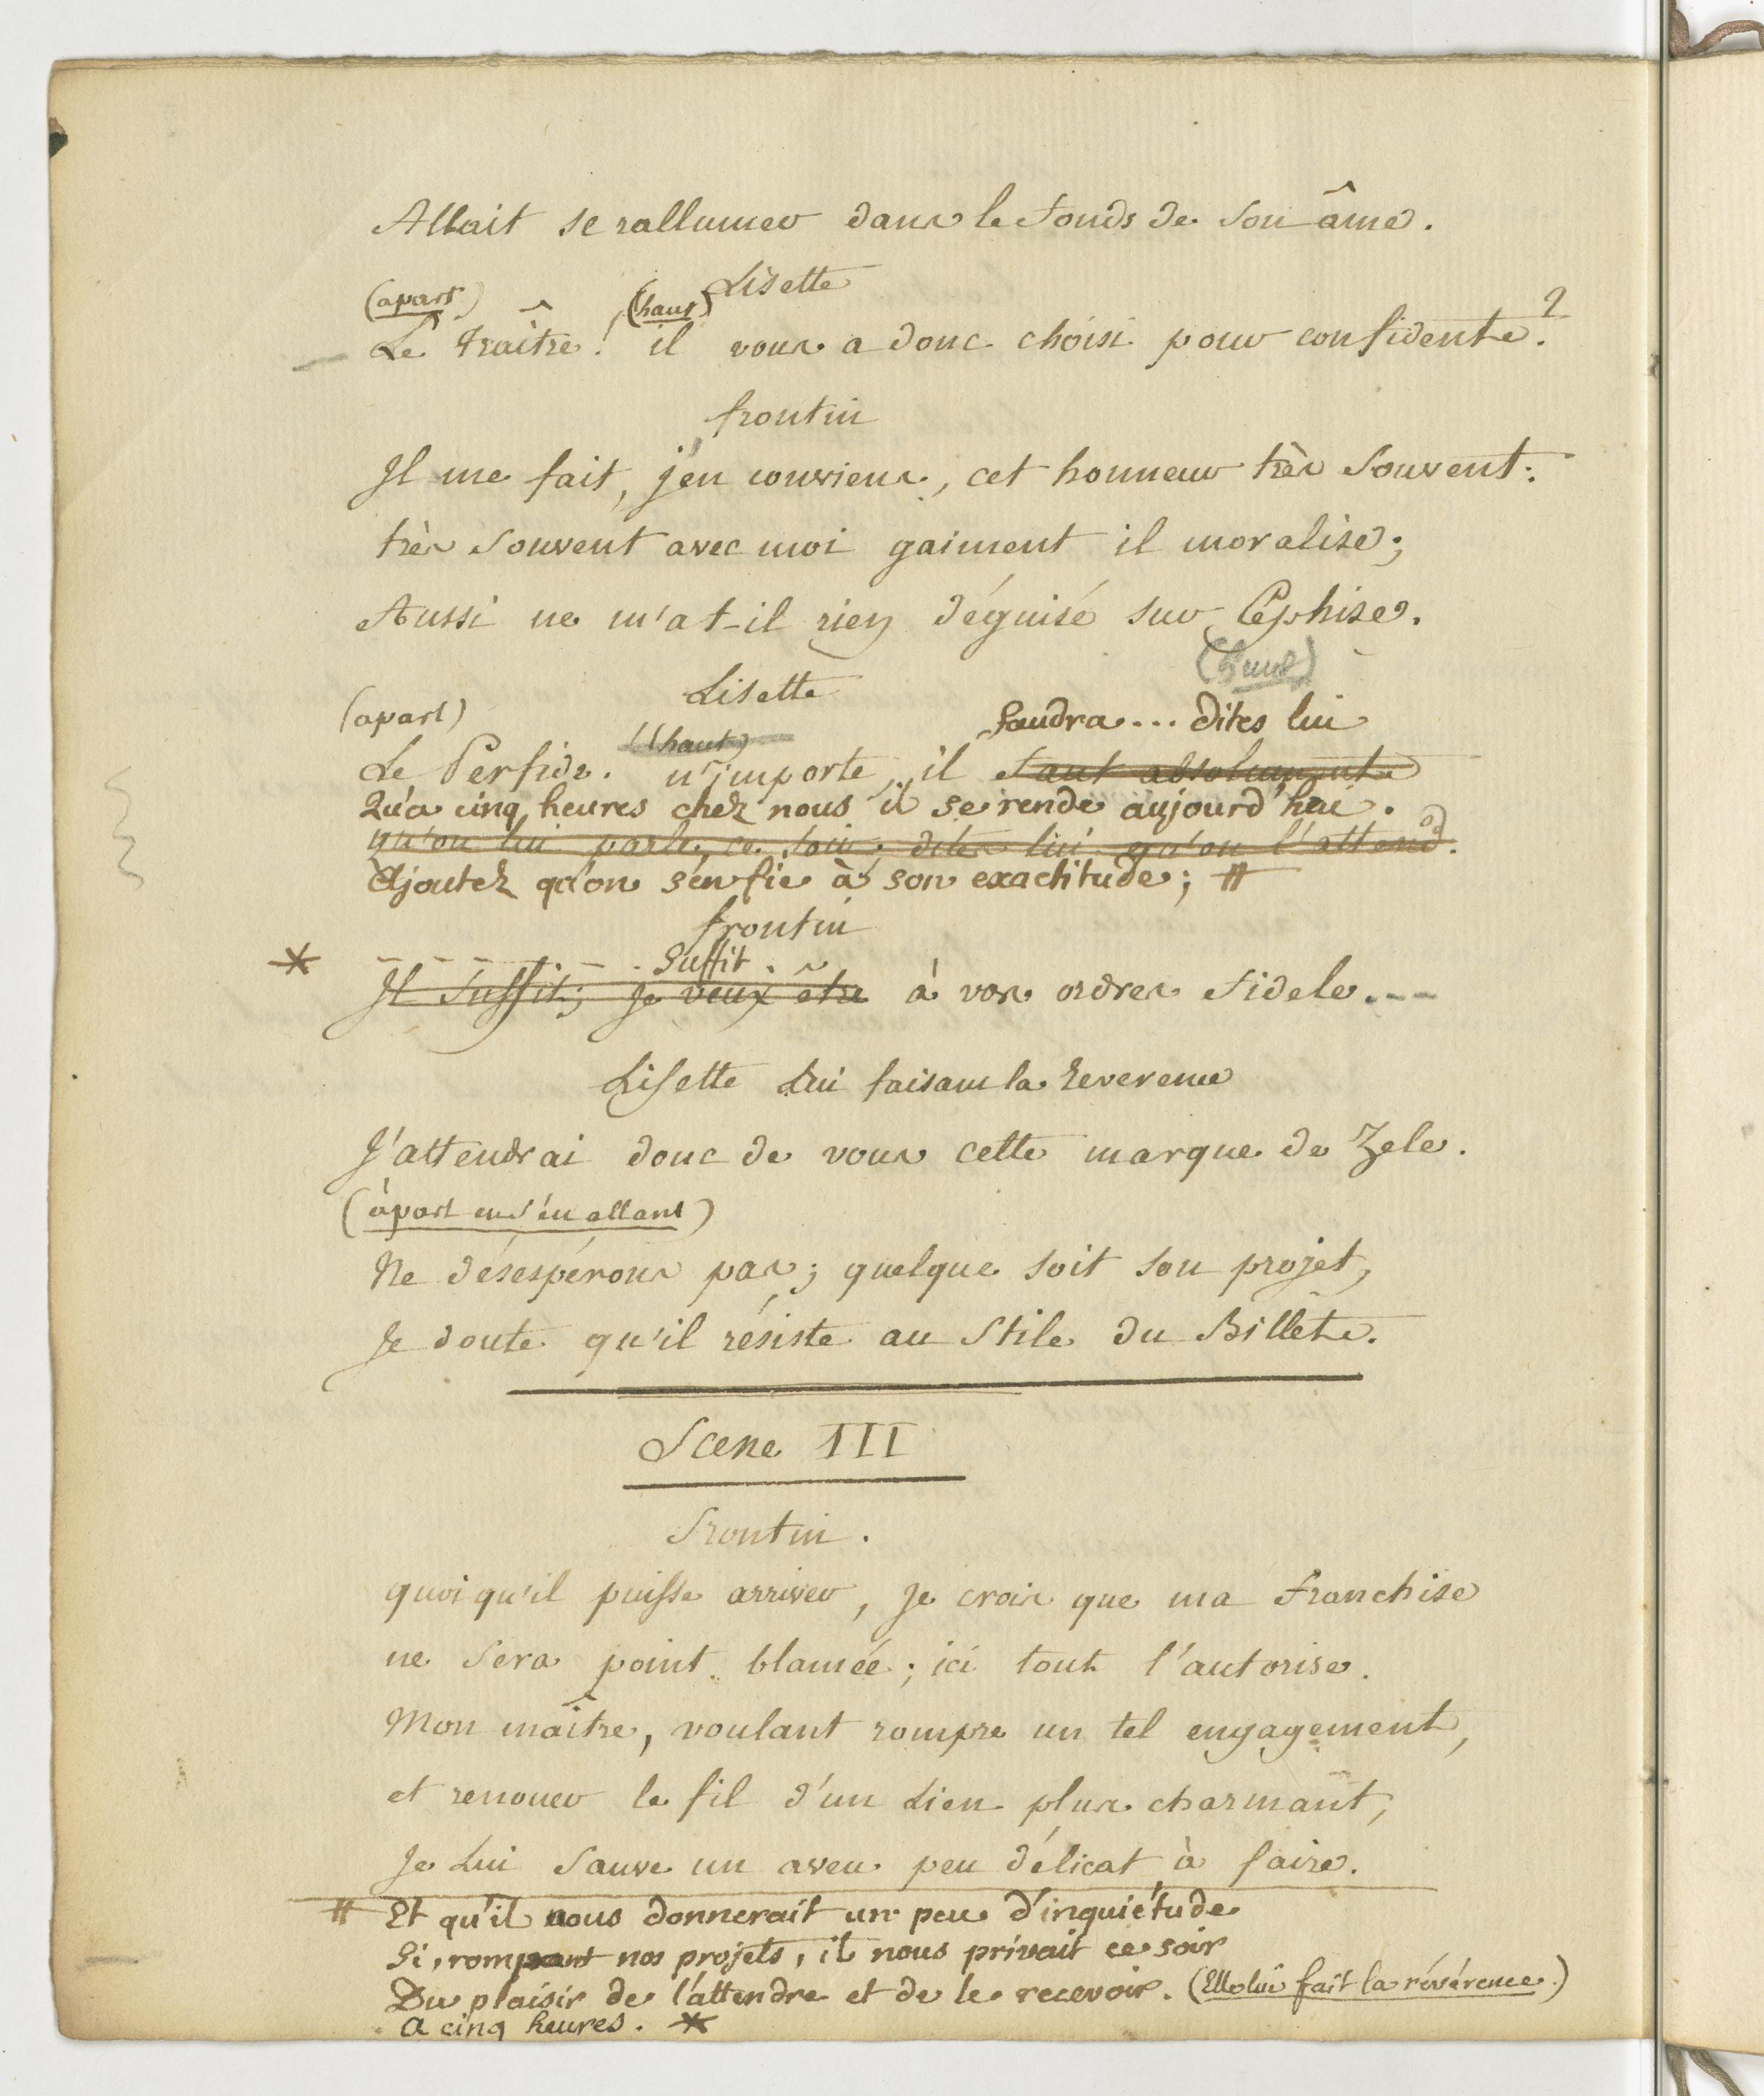 Allait se rallumer dans le fonds de son âme.
Lisette
(apart) (haut)
Le traître! il vous a donc choisi pour confidente?
frontin
Il me fait, j'en conviens, cet honneur très souvent:
très souvent avec moi gaiment il moralise;
Aussi ne m'at-il rien déguisé sur Céphise.
(haut)
Lisette
(apart) faudra... dites lui
(haut)
Le Perfide. n'importe, il faut absolument
Qu'a cinq heures chez nous il se rende aujourd'hui.
qu'on lui parle, ce soir; dites lui qu'on l'attend.
Ajoutez qu'on s'en fie à son exactitude; #
frontin
* Suffit.
Il suffit; je veux être à vos ordres fidele...
Lisette lui faisant la reverence
J'attendrai donc de vous cette marque de Zele.
(àpart en s'en allant)
Ne désespérons pas; quelque soit son projet,
Je doute qu'il résiste au stile du Billet.
Scene III
Frontin.
quoi qu'il puisse arriver, je crois que ma franchise
ne sera point blamée; ici tout l'autorise.
Mon maître, voulant rompre un tel engagement,
et renouer le fil d'un lien plus charmant,
Je lui sauve un aveu peu délicat à faire.
# Et qu'il nous donnerait un peu d'inquiétude
Si, rompant nos projets, il nous privait ce soir
Du plaisir de l'attendre et de le recevoir. (Elle lui fait la révérence.)
A cinq heures. *